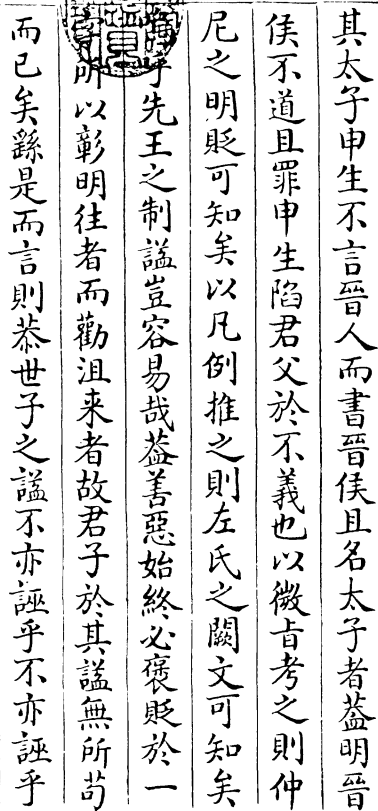 其太子申生不言晉人而書晉侯且名太子者葢明晉
侯不道且罪申生陷君父於不義也以微旨考之則仲
尼之明貶可知矣以凡例推之則左氏之闕文可知矣
嗚乎先王之制謚豈容易哉葢善惡始終必褒貶於一
字所以彰明往者而勸沮来者故君子於其謚無所茍
而已矣繇是而言則恭世子之謚不亦誣乎不亦誣乎